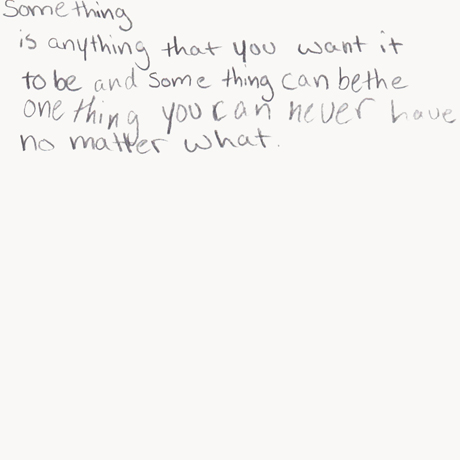 Something
is anything that you want it
to be and some thing can bethe
one thing you can never have
no matter what.